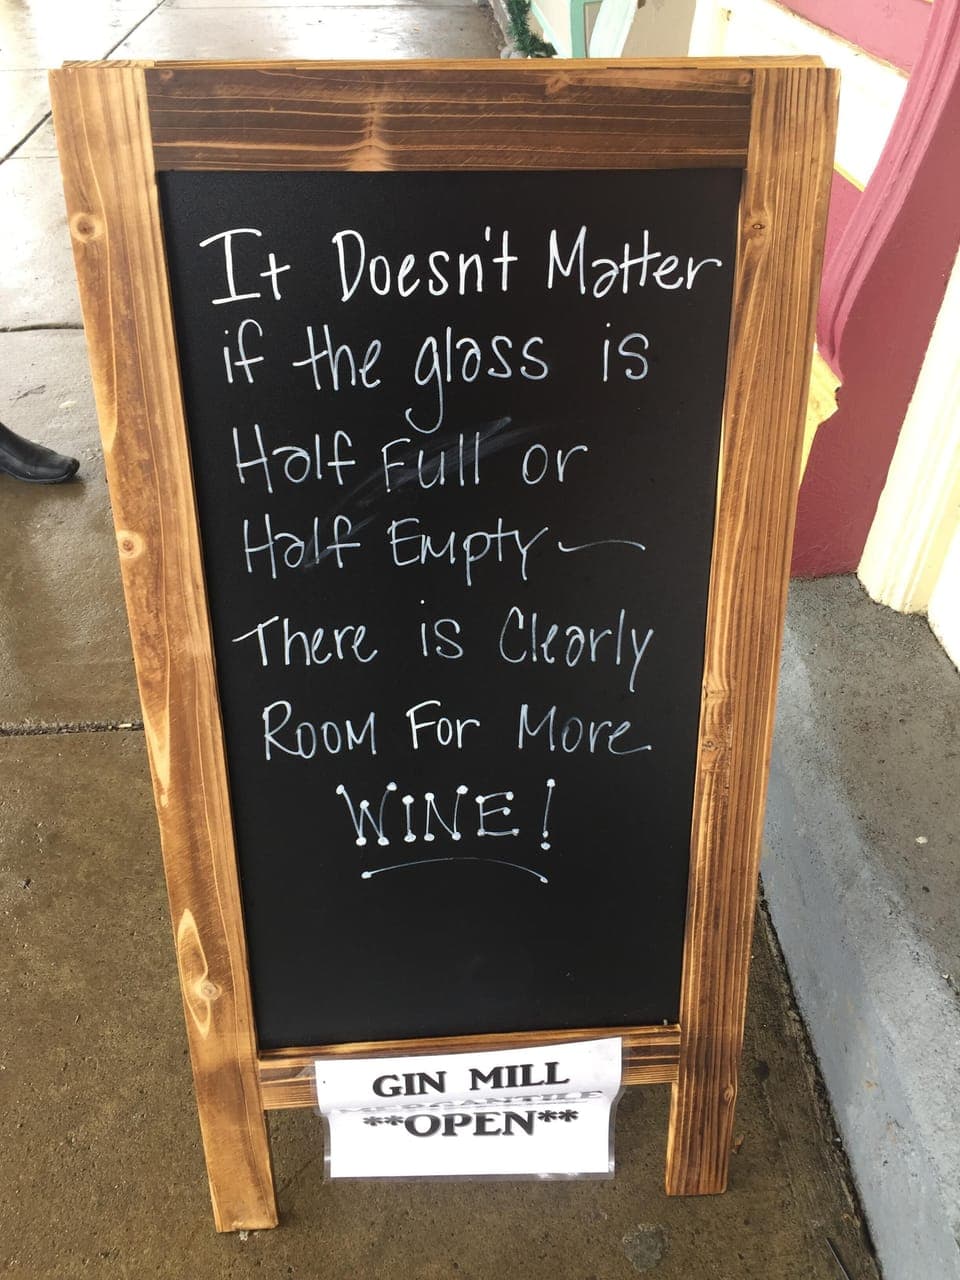 It Doesn't Matter
if the glass is
Half Full or
Half Empty —
There is Clearly
ROOM FOR More
WINE!
GIN MILL
MERCANTILE
**OPEN**